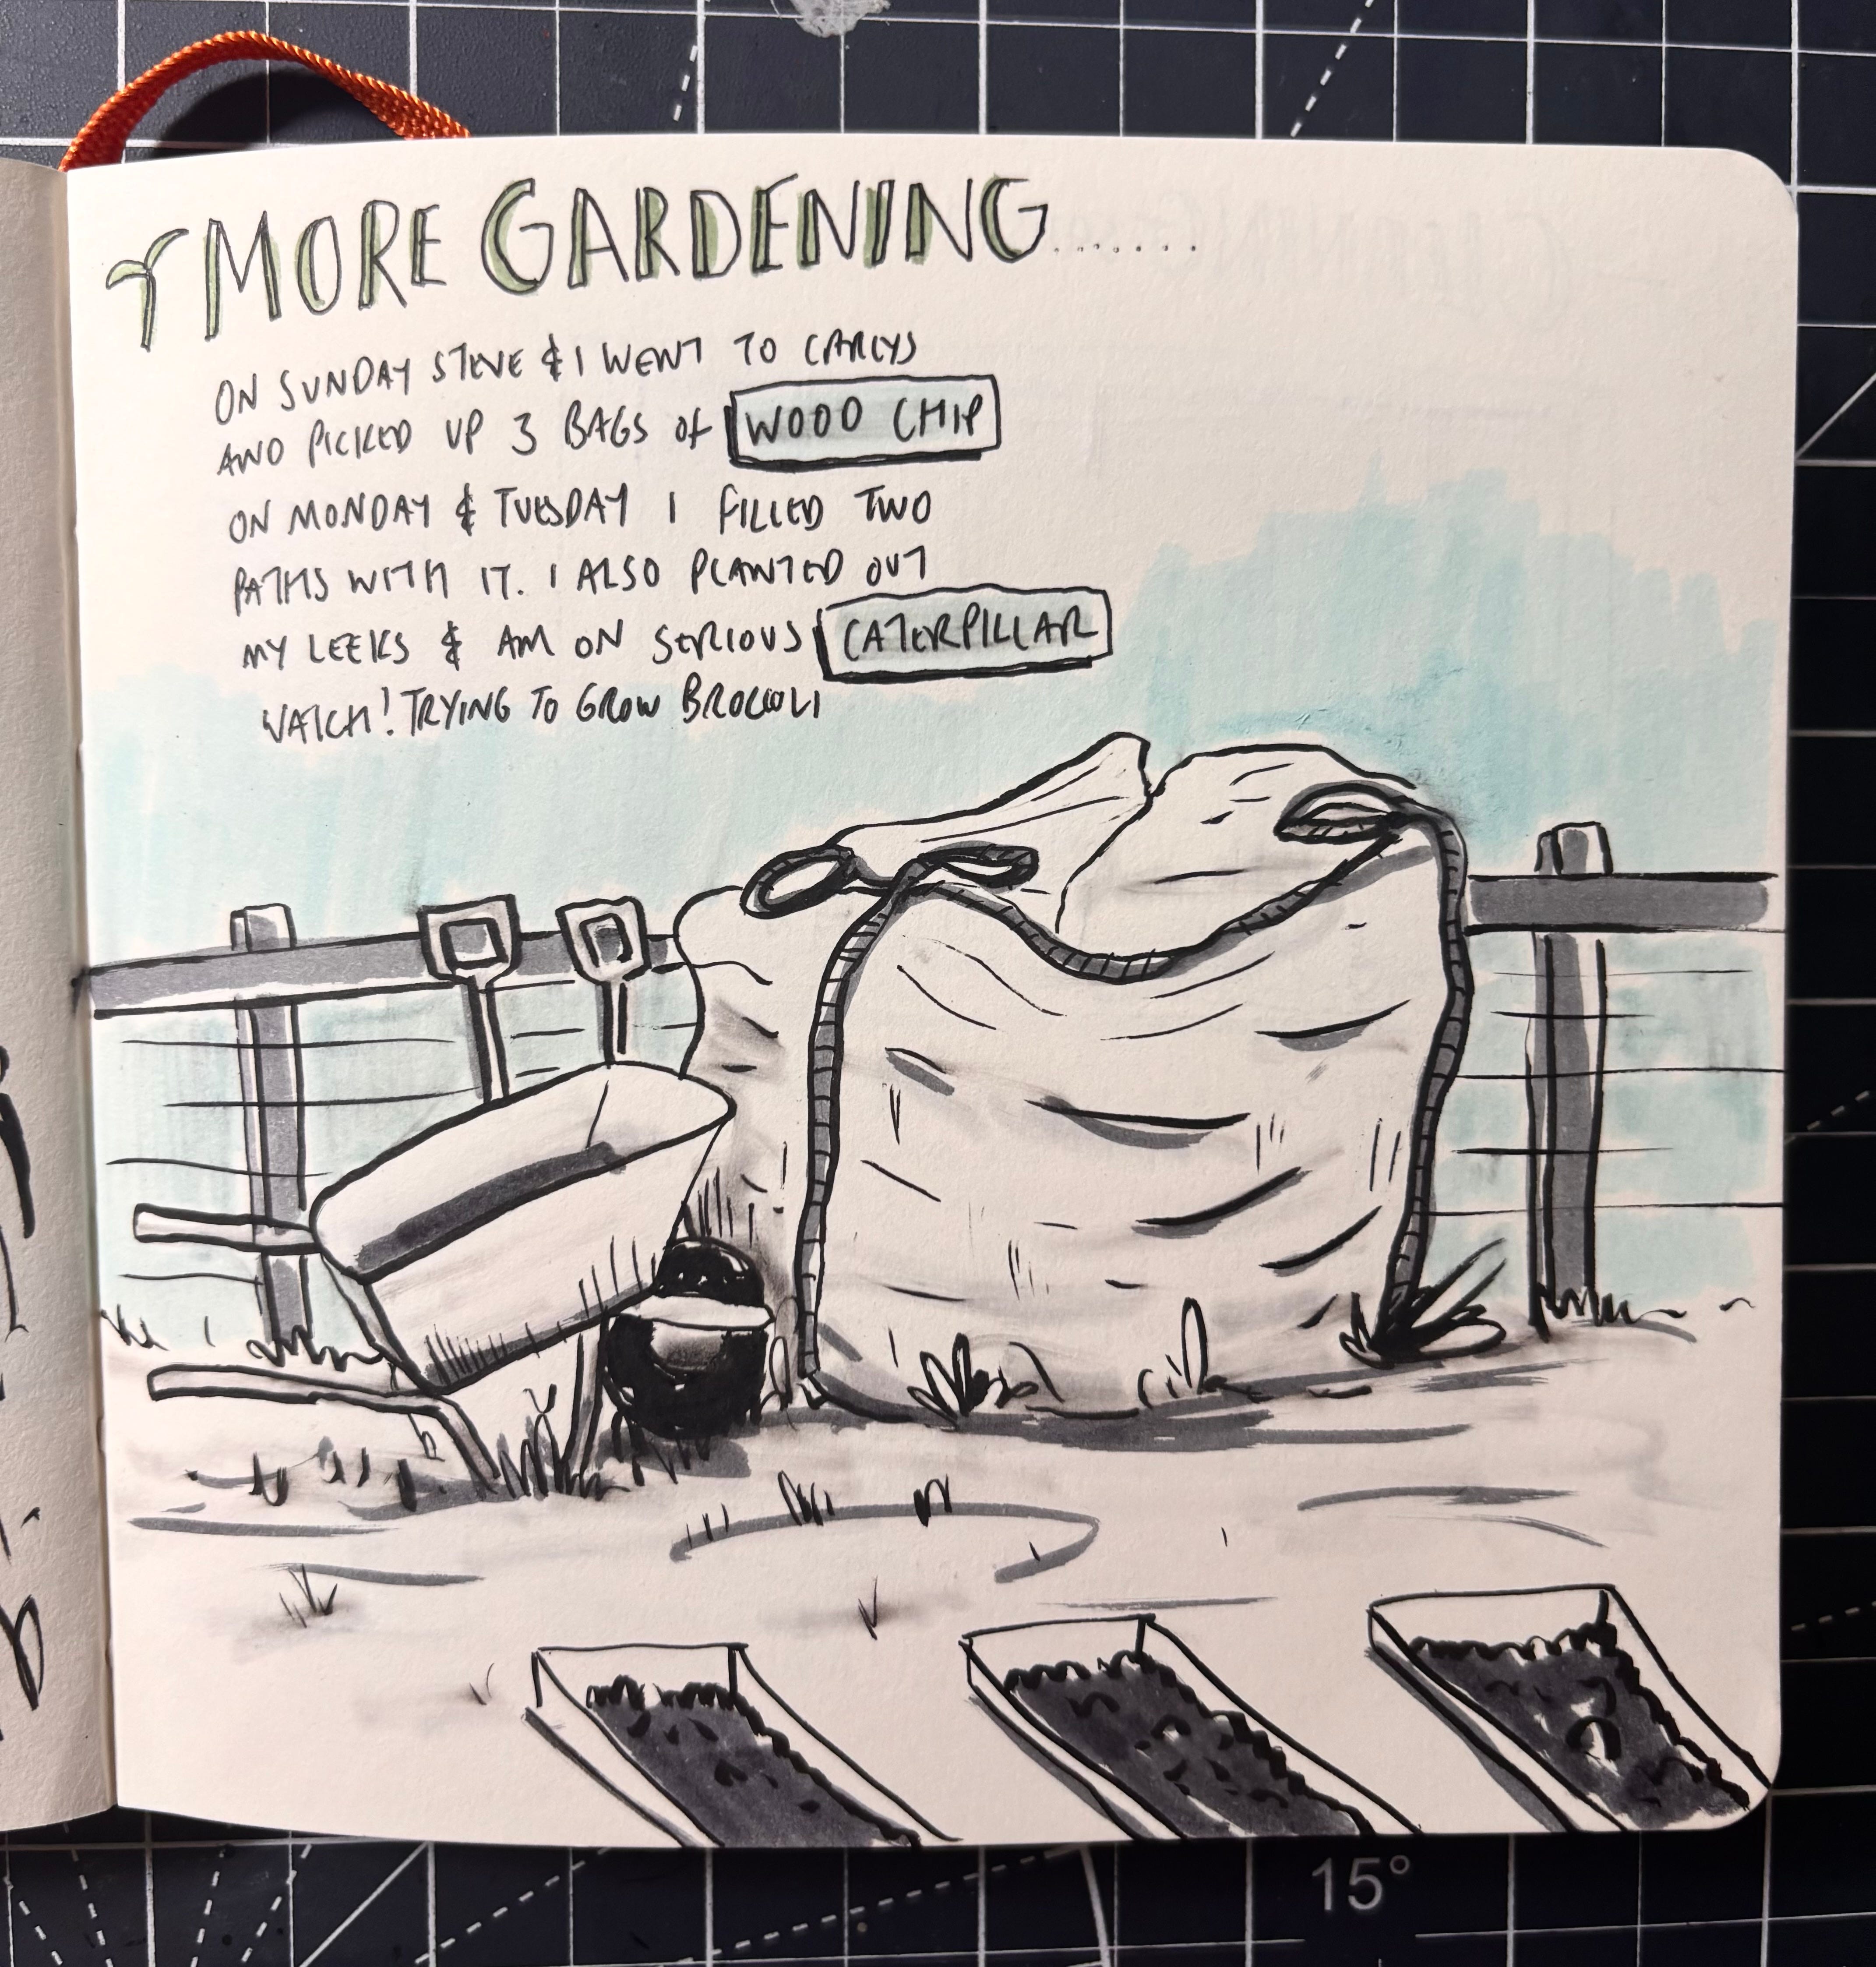 MORE GARDENING.......
ON SUNDAY STEVE & I WENT TO CARLYS
AND PICKED UP 3 BAGS OF WOOD CHIP
ON MONDAY & TUESDAY I FILLED TWO
PATHS WITH IT. I ALSO PLANTED OUT
MY LEEKS & AM ON SERIOUS CATERPILLAR
WATCH! TRYING TO GROW BROCCOLI
15°